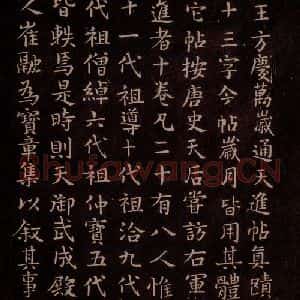 王方慶萬歲通天進帖真蹟
十三字今帖歲月皆用其體
它帖按唐史天后嘗訪右軍
進者十卷凡二十有八人惟
十一代祖導十代祖洽九代
代祖僧綽六代祖仲寶五代
皆軼焉是時則天御武成殿
人崔融為寶章集以叙其事
Shufawang.CN